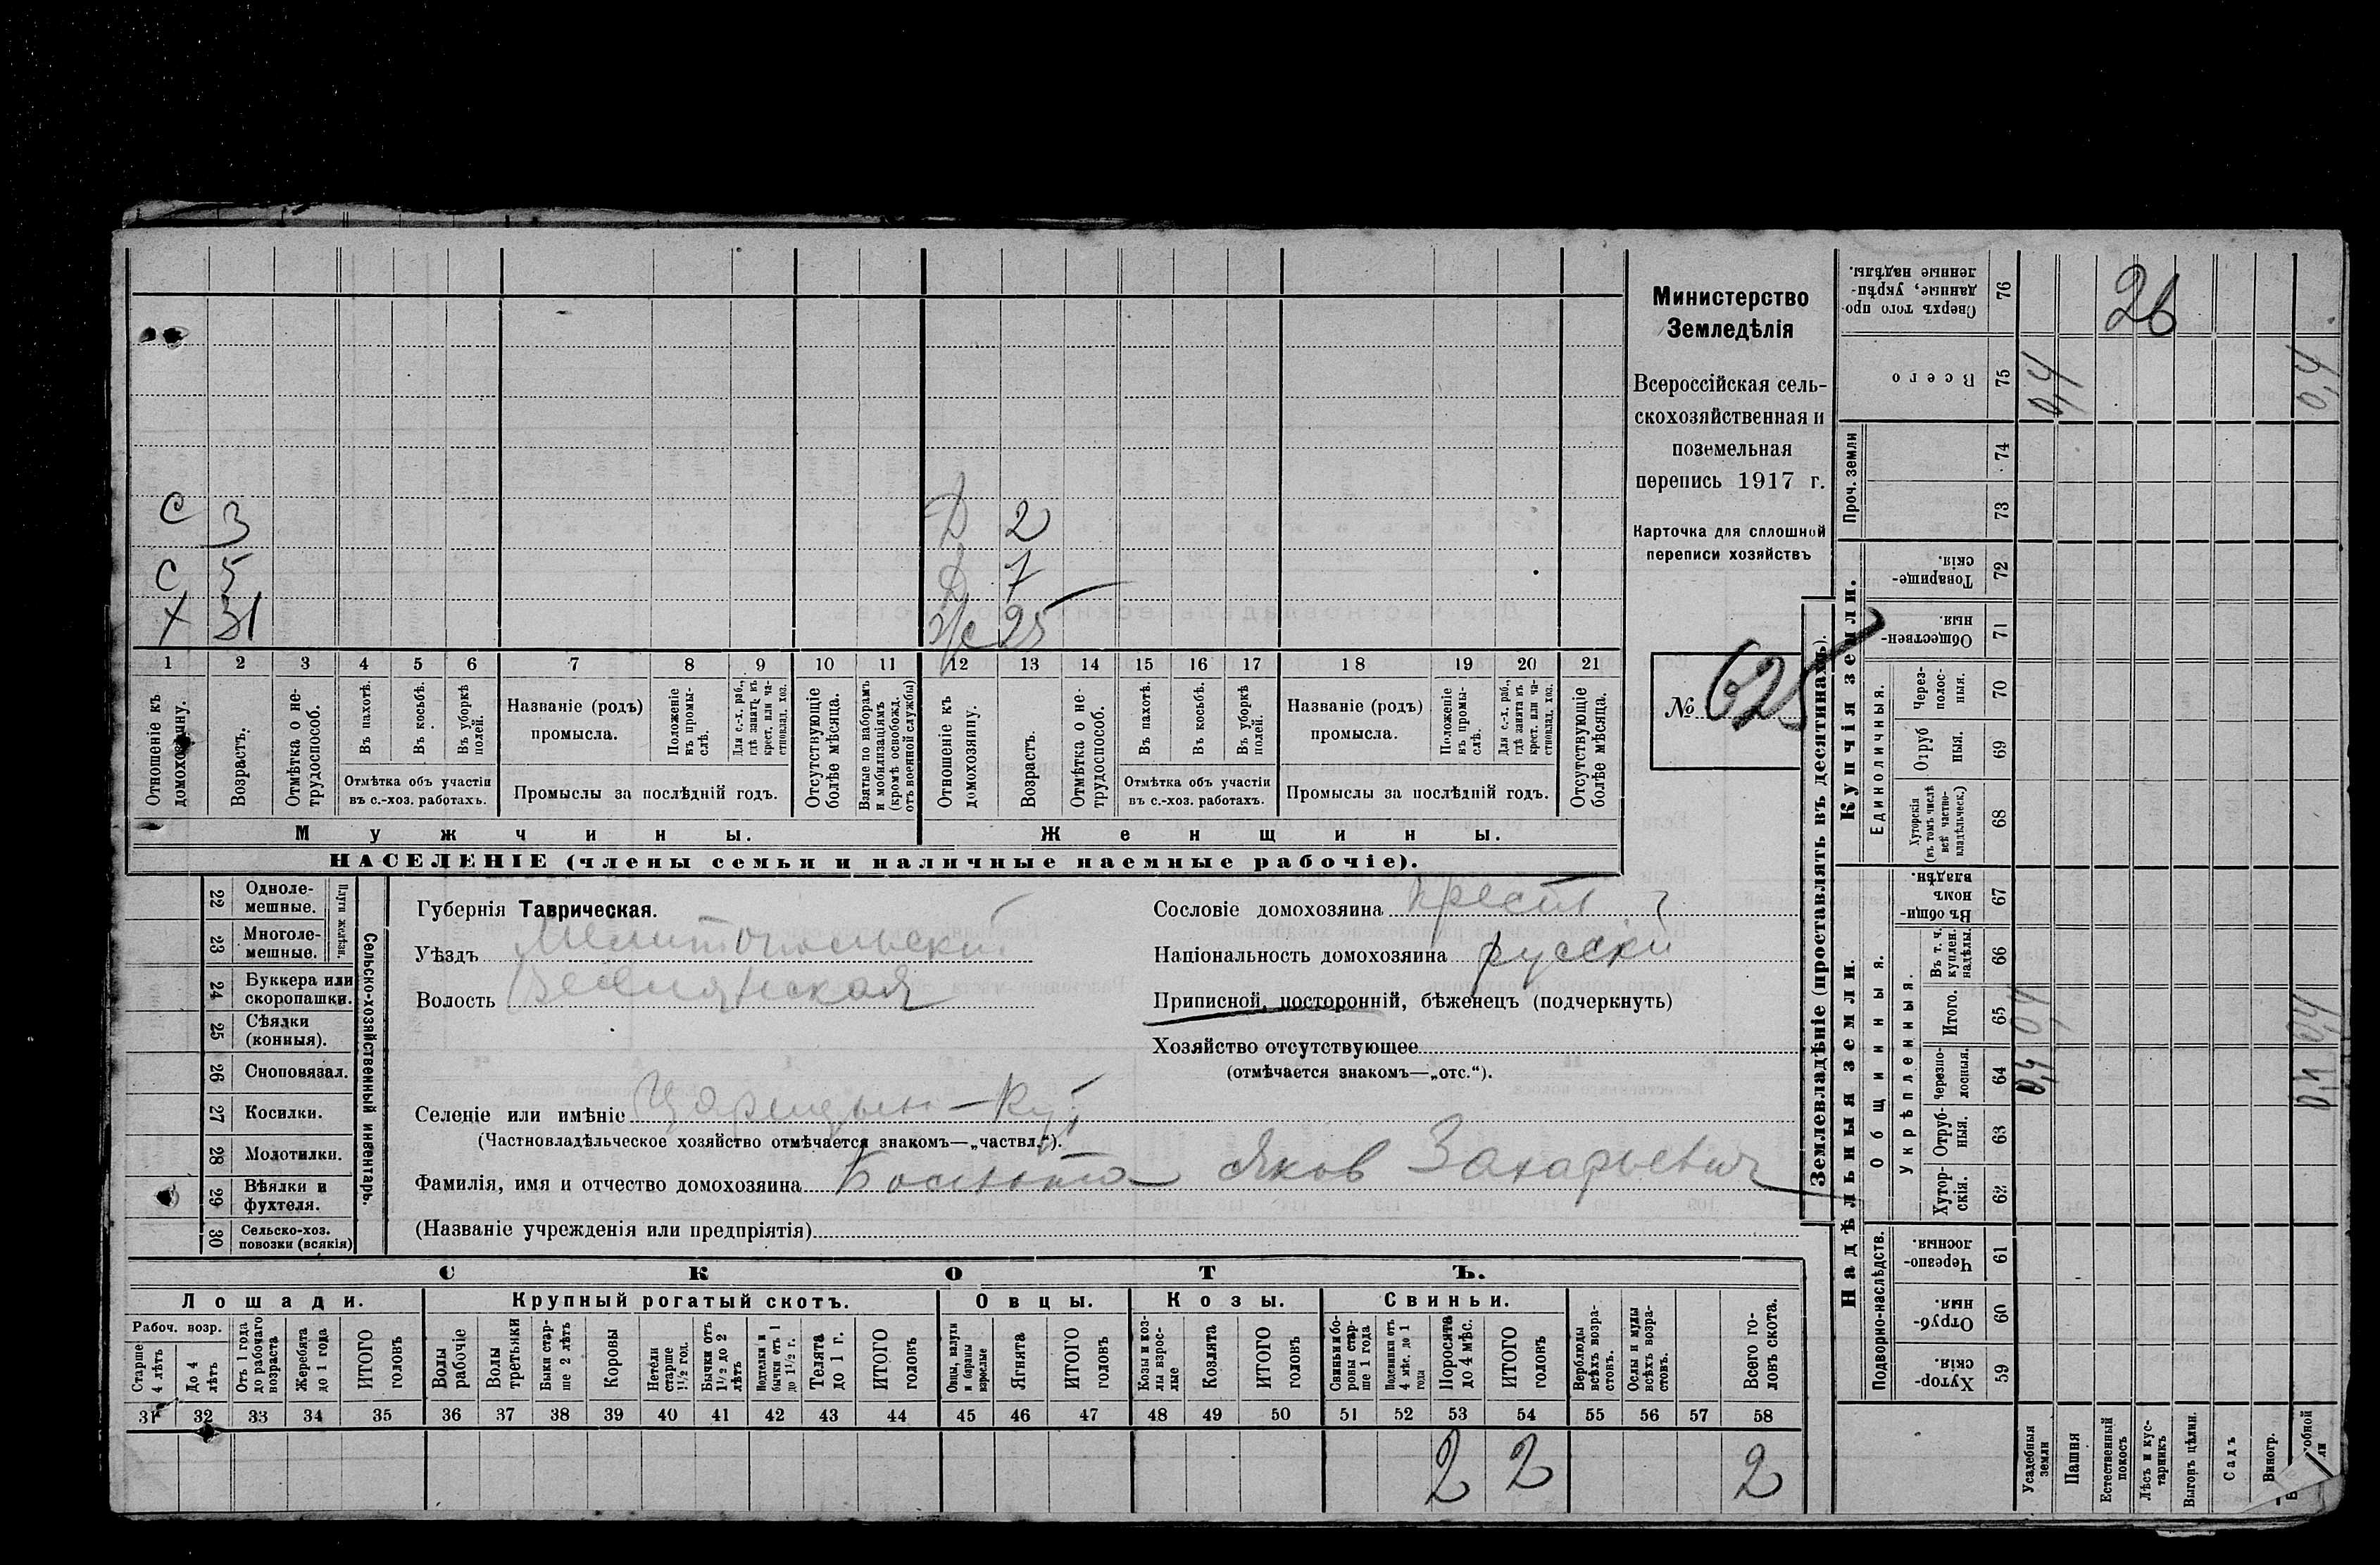 Министерство
Земледѣлія
Всероссійская сель-
скохозяйственная и
поземельная
перепись 1917 г.
Карточка для сплошной
переписи хозяйствъ
№ 625
С 3 Д 2
С 5 Д 7
Х 31 ж 25
1 2 3 4 5 6 7 8 9 10 11 12 13 14 15 16 17 18 19 20 21
Отношеніе къ домохозяину.
Возрастъ.
Отмѣтка о не-
трудоспособ.
Въ пахотѣ.
Въ косьбѣ.
Въ уборкѣ полей.
Отмѣтка объ участіи
въ с.-хоз. работахъ.
Названіе (родъ)
промысла.
Положеніе въ промы-
слѣ.
Для с.-х. раб., гдѣ занатъ въ крест. или ча-
стновлад. хоз.
Промыслы за послѣдній годъ.
Отсутствующіе болѣе мѣсяца.
Взятые по наборамъ и мобилизаціямъ (кромѣ освобожд. отъ военной службы)
Отношеніе къ домохозяину.
Возрастъ.
Отмѣтка о не-
трудоспособ.
Въ пахотѣ.
Въ косьбѣ.
Въ уборкѣ полей.
Отмѣтка объ участіи
въ с.-хоз. работахъ.
Названіе (родъ)
промысла.
Положеніе въ промы-
слѣ.
Для с.-х. раб., гдѣ занята въ крест. или ча-
стновлад. хоз.
Промыслы за послѣдній годъ.
Отсутствующіе болѣе мѣсяца.
Мужчины. Женщины.
НАСЕЛЕНІЕ (члены семьи и наличные наемные рабочіе).
Сельско-хозяйственный инвентарь.
Плуги желѣзн.
22 Одноле-
мешные.
23 Многоле-
мешные.
24 Буккера или
скоропашки.
25 Сѣялки
(конныя).
26 Сноповязал.
27 Косилки.
28 Молотилки.
29 Вѣялки и
фухтеля.
30 Сельско-хоз.
повозки (всякія)
Губернія Таврическая.
Уѣздъ Мелитопольски
Волость Веселянская
Сословіе домохозяина крест
Національность домохозяина русски
Приписной, посторонній, бѣженецъ (подчеркнуть)
Хозяйство отсутствующее
(отмѣчается знакомъ—„отс.“).
Селеніе или имѣніе Царицын-Кут
(Частновладѣльческое хозяйство отмѣчается знакомъ—„частвл.“).
Фамилія, имя и отчество домохозяина Яков Захарьевич
(Названіе учрежденія или предпріятія)
СКОТЪ.
Лошади. Крупный рогатый скотъ. Овцы. Козы. Свиньи.
Рабоч. возр.
Старше 4 лѣтъ
До 4 лѣтъ
Отъ 1 года до рабочаго возраста
Жеребята до 1 года
ИТОГО головъ
Волы рабочіе
Волы третьяки
Быки стар-
ше 2 лѣтъ
Коровы
Нетели старше 1½ год.
Бычки отъ 1½ до 2 лѣтъ
Подтелки и бычки отъ 1 до 1½ г.
Телята до 1 г.
ИТОГО головъ
Овцы, валухи и бараны взрослые
Ягнята
ИТОГО головъ
Козы и коз-
лы взрос-
лые
Козлята
ИТОГО головъ
Свиньи и бо-
ровы стар-
ше 1 года
Подсвинки отъ 4 мѣс. до 1 года
Поросята до 4 мѣс.
ИТОГО головъ
Верблюды всѣхъ возра-
стовъ.
Ослы и мулы всѣхъ возра-
стовъ.
Всего го-
ловъ скота.
31 32 33 34 35 36 37 38 39 40 41 42 43 44 45 46 47 48 49 50 51 52 53 54 55 56 57 58
2 2 2
Землевладѣніе (проставлять въ десятинахъ).
Надѣльныя земли. Купчія земли.
Подворно-наслѣдств.
Общинныя.
Укрѣпленныя.
Единоличныя.
Проч. земли
Хутор-
скія. 59
Отруб-
ныя. 60
Черезпо-
лосныя 61
Хутор-
скія. 62
Отруб-
ныя. 63
Черезпо-
лосныя. 64
Итого. 65
Въ т. ч. куплен. надѣлы. 66
Въ общи-
номъ владѣн. 67
Хуторскія (въ томъ числѣ всѣ частно-
владѣльческ.) 68
Отруб
ныя. 69
Через-
полос-
ныя. 70
Обществен-
ныя. 71
Товарище-
скія. 72
73
74
Всего 75
Сверхъ того про-
данные, укрѣп-
ленные надѣлы. 76
Усадебныя земли 0,4 0,4 0,4
Пашня
Естественный покосъ
Лѣсъ и кус-
тарникъ
Выгонъ цѣлин.
Садъ
Виногр.
0,4 0,4 0,4
26